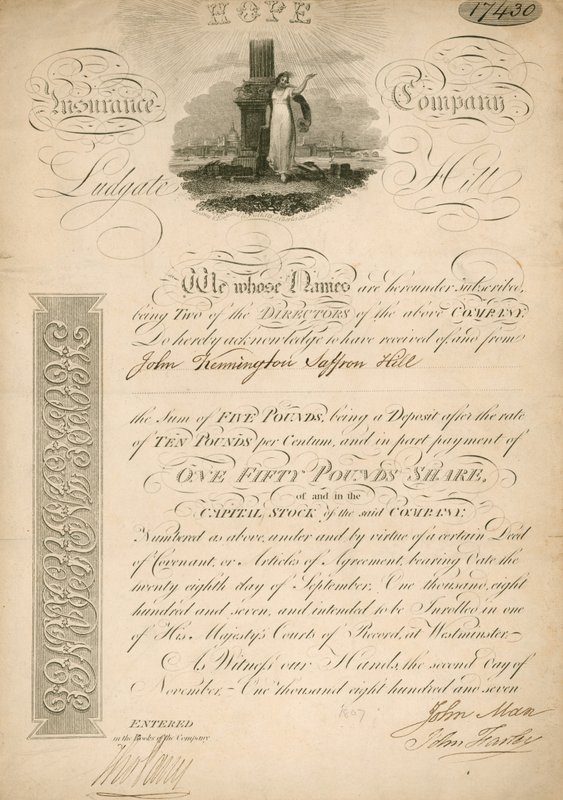 HOPE
17430
Insurance Company
Ludgate Hill
We whose Names are hereunder subscribed,
being Two of the DIRECTORS of the above COMPANY
Do hereby acknowledge to have received of, and from
John Kennington Saffron Hill
the Sum of FIVE POUNDS, being a Deposit after the rate
of TEN POUNDS per Centum, and in part payment of
ONE FIFTY POUNDS SHARE,
of and in the
CAPITAL STOCK of the said COMPANY.
Numbered as above, under and by virtue of a certain Deed
of Covenant, or Articles of Agreement, bearing date the
twenty eighth day of September, One thousand, eight
hundred and seven, and intended to be Inrolled in one
of His Majesty's Courts of Record, at Westminster,-
As Witness our Hands, the second day of
November,- One thousand eight hundred and seven
1807
John Man
John
ENTERED
in the Books of the Company